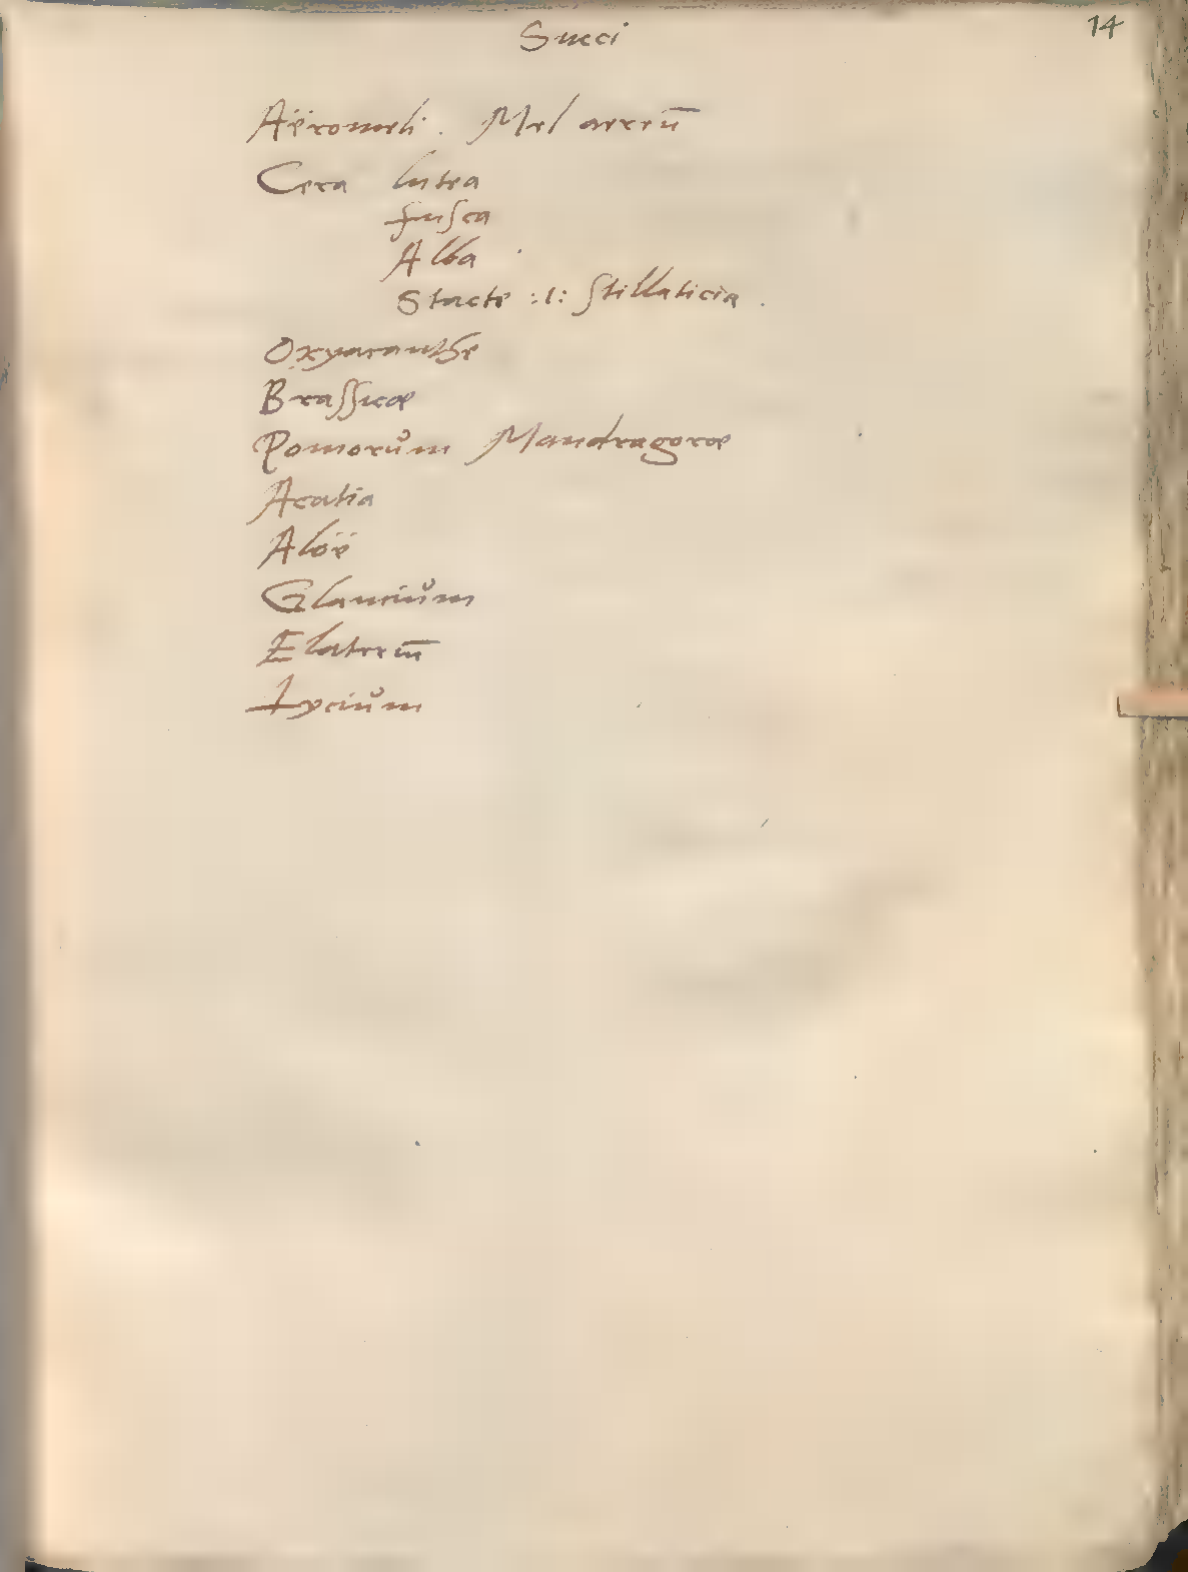 Succi 14
Aëromeli. Mel aereū
Cera lutea
fusca
Alba
Stacte :i: stillaticia.
Oxyacanthe
Brassicæ
Pomorum Mandragoræ
Acatia
Aloë
Glaucium
Elateriū
Lycium